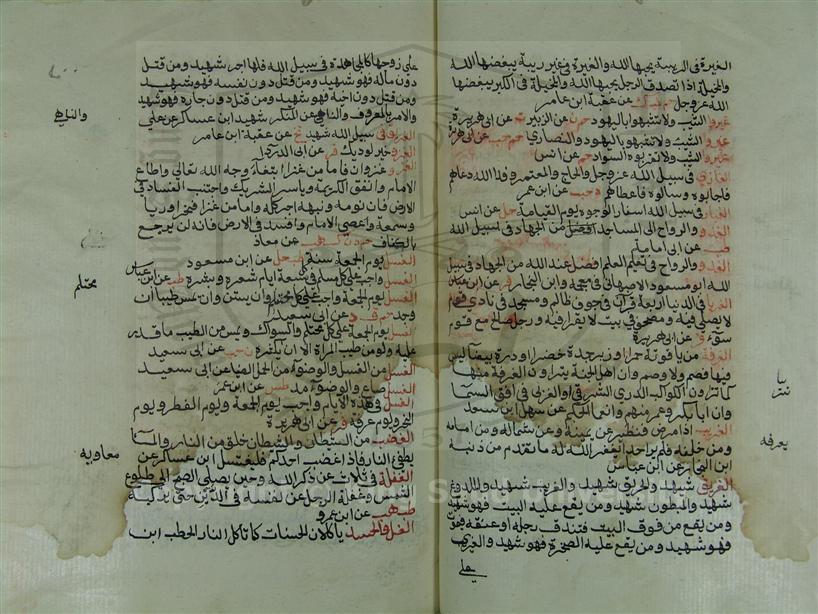 الغيرة في الريبة يحبها الله والغيرة في غير ريبة يبغضها الله
والمخيلة اذا تصدق الرجل يحبها الله والمخيلة في الكبر يبغضها
الله عز وجل عن عقبة ابن عامر
غيروا الشيب ولا تشبهوا باليهود حم ن عن الزبير ت عن ابي هريرة
غيروا الشيب ولا تشبهوا باليهود والنصارى حم حب عن ابي هريرة
غيروا الشيب ولا تقربوه السواد حم عن انس
الغازي في سبيل الله عز وجل والحاج والمعتمر وفد الله دعاهم
فاجابوه وسالوه فاعطاهم ه حب عن ابن عمر
الغبار في سبيل الله اسفار الوجوه يوم القيامة حل عن انس
الغدو والرواح الى المساجد افضل من الجهاد في سبيل الله
طب عن ابي امامة
الغدو والرواح في تعليم العلم افضل عند الله من الجهاد في سبيل
الله ابو مسعود الاصبهاني في معجمه وابن النجار فر عن ابن عباس
الغربا في الدنيا اربعة قرآن في جوف ظالم ومسجد في نادي قوم
لا يصلى فيه ومصحف في بيت لا يقرا فيه ورجل صالح مع قوم
سوء فر عن ابي هريرة
الغرفة من ياقوتة حمرا او زبرجدة خضرا او درة بيضا ليس
فيها فصم ولا وصم وان اهل الجنة يتراون الغرفة منها
كما تتراون الكوكب الدري الشرقي او الغربي في افق السما
وان ابا بكر وعمر منهم وانعما الحكيم عن سهل ابن سعد
الغريب اذا مرض فنظر عن يمينه وعن شماله ومن امامه
ومن خلفه فلم ير احدا يغفر الله له ما تقدم من ذنبه
ابن النجار عن ابن عباس
الغريق شهيد والحريق شهيد والغريب شهيد والملدوغ
شهيد والمبطون شهيد ومن يقع عليه البيت فهو شهيد
ومن يقع من فوق البيت فتندق رجله او عنقه فيموت
فهو شهيد ومن يقع عليه الصخرة فهو شهيد والغيرى
على
يعرفه
على زوجها كالمجاهدة في سبيل الله فلها اجر شهيد ومن قتل
دون ماله فهو شهيد ومن قتل دون نفسه فهو شهيد
ومن قتل دون اخيه فهو شهيد ومن قتل دون جاره فهو شهيد
والامر بالمعروف والناهي عن المنكر شهيد ابن عساكر عن علي
الغريق في سبيل الله شهيد تخ عن عقبة ابن عامر
الغزو خير لوديك فر عن ابي الدردا
الغزو غزوان فاما من غزا ابتغاء وجه الله تعالى واطاع
الامام وانفق الكريمة وياسر الشريك واجتنب الفساد في
الارض فان نومه ونبهه اجر كله واما من غزا فخرا وريا
وسمعة وعصى الامام وافسد في الارض فانه لن يرجع
بالكفاف حم د ن ك هب عن معاذ
الغسل يوم الجمعة سنة طب حل عن ابن مسعود
الغسل واجب على كل مسلم في سبعة ايام شعره وبشره طب عن ابن عباس
الغسل يوم الجمعة واجب على كل محتلم وان يستن وان يمس طيبا ان
وجد حم ق د عن ابي سعيد
الغسل يوم الجمعة على كل محتلم والسواك ويمس من الطيب ما قدر
عليه ولو من طيب المراة الا ان يكثره ن حب عن ابي سعيد
الغسل من الغسل والوضوء من الحمل الضيا عن ابي سعيد
الغسل صاع والوضوء مد طس عن ابن عمر
الغسل في هذه الايام واجب يوم الجمعة ويوم الفطر ويوم
النحر ويوم عرفة فر عن ابي هريرة
الغضب من الشيطان والشيطان خلق من النار والماء
يطفي النار فاذا غضب احدكم فليغتسل ابن عساكر عن
الغفلة في ثلاث عن ذكر الله وحين يصلي الصبح الى طلوع
الشمس وغفلة الرجل عن نفسه في الدين حتى يركبه
طب هب عن ابن عمرو
الغل والحسد ياكلان الحسنات كما تاكل النار الحطب ابن
والناهي
محتلم
معاوية